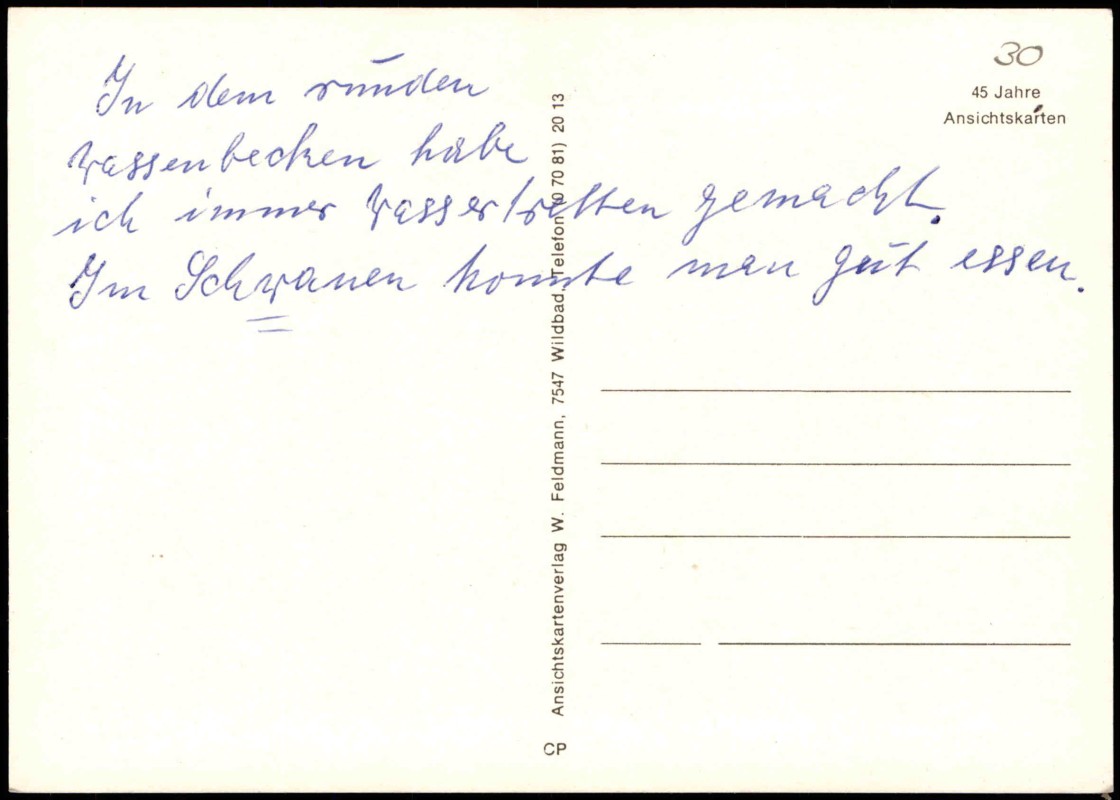 In dem runden
Wassenbecken habe
ich immer Wassertretten gemacht.
Im Schwanen konnte man gut essen.
30
45 Jahre
Ansichtskarten
Ansichtskartenverlag W. Feldmann, 7547 Wildbad, Telefon (0 70 81) 20 13
CP